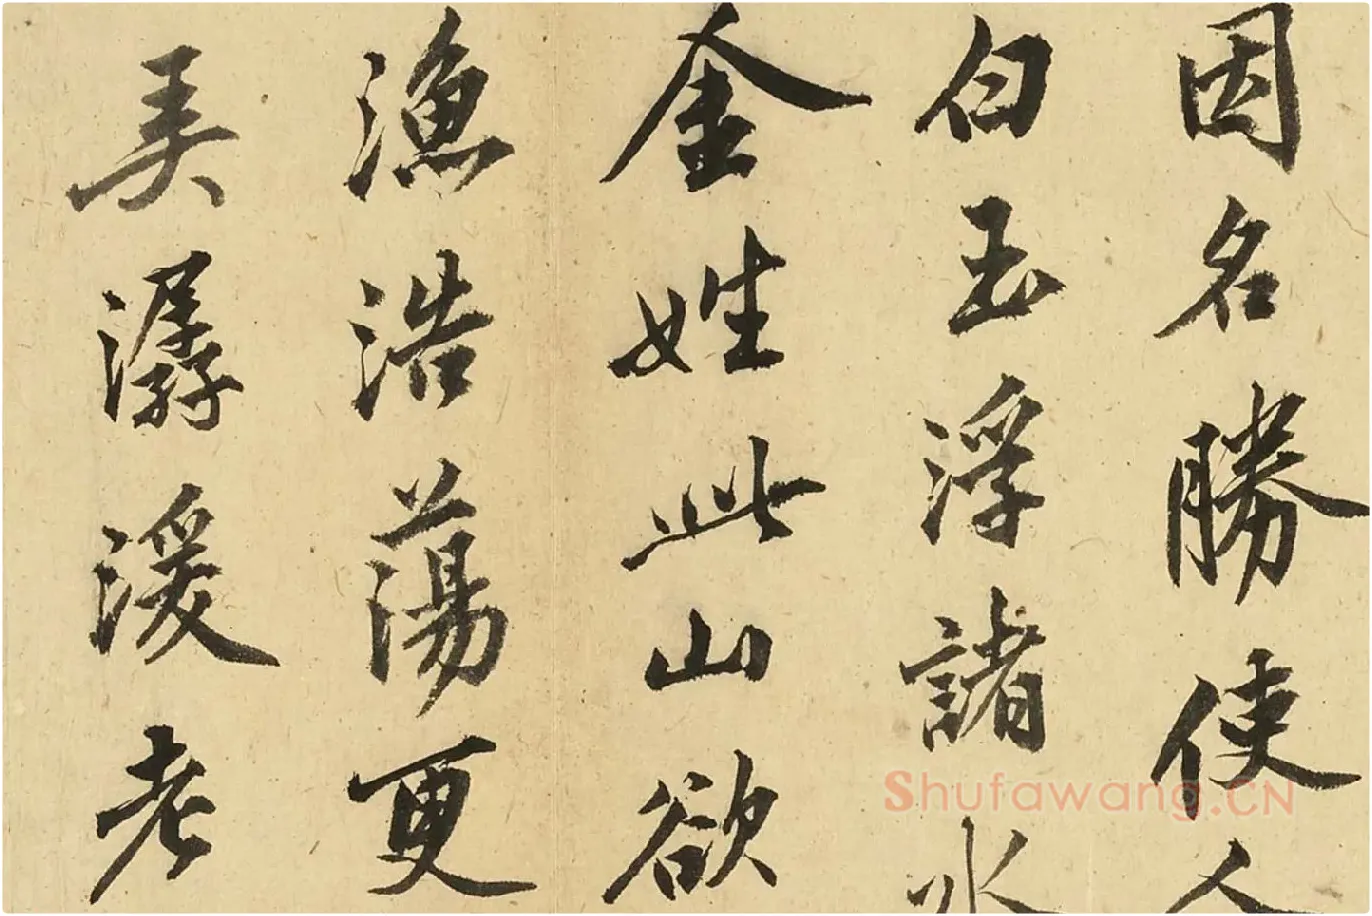 因名勝使人
白玉浮諸水
金姓此山欲
漁浩蕩更
潺湲老
Shufawang.CN